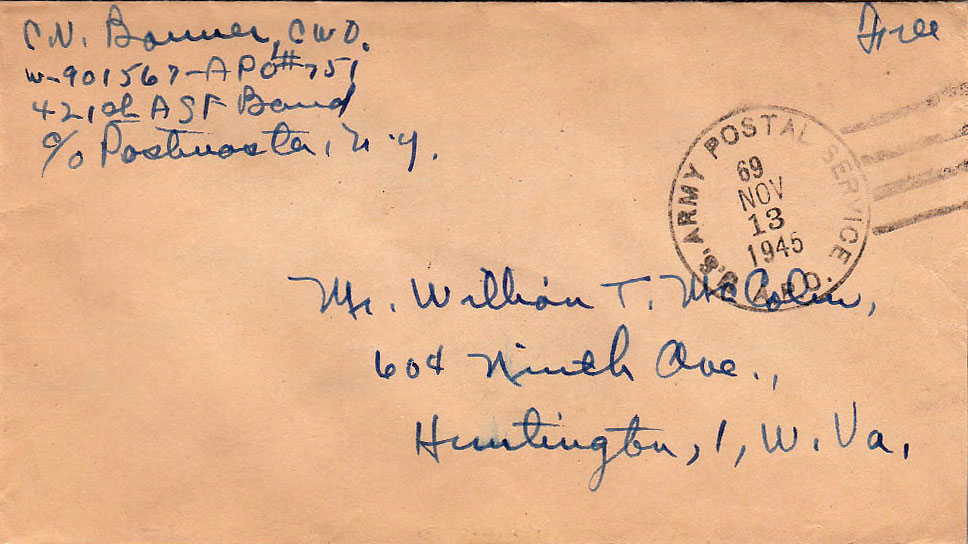 C.N. Bonner, CWO.
W-901567-APO#751
421st ASF Band
c/o Postmaster, N.Y.
Free
U.S. ARMY POSTAL SERVICE
A.P.O.
69
NOV
13
1945
Mr. William T. McColm,
604 Ninth Ave.,
Huntington, 1, W. Va.